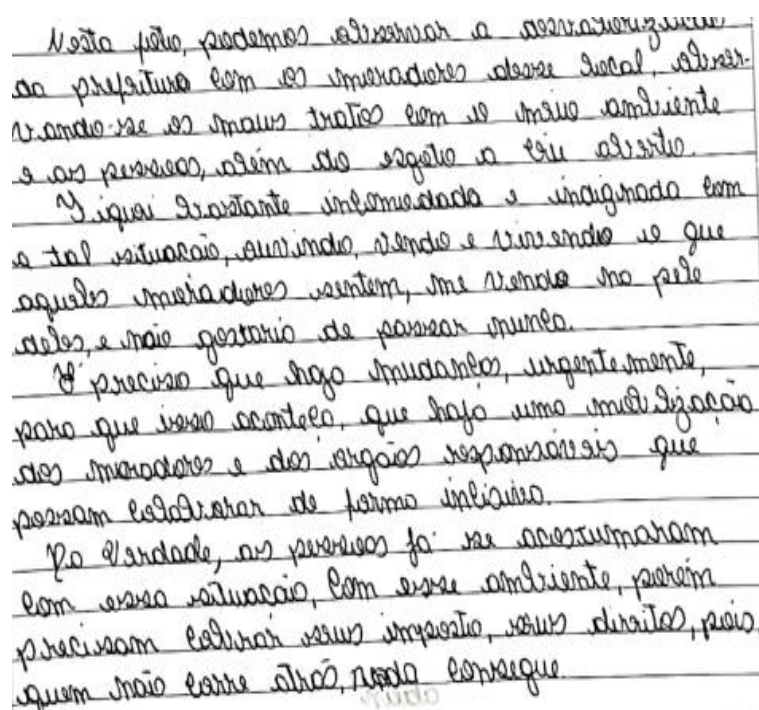 Nesta foto, podemos observar a desvalorização
da prefeitura com os moradores desse local, obser-
vando-se os maus tratos com o meio ambiente
e as pessoas, além do esgoto a céu aberto.
Fiquei bastante incomodada e indignada com
a tal situação, ouvindo, vendo e vivendo o que
aqueles moradores sentem, me vendo na pele
deles, e não gostaria de passar nunca.
É preciso que haja mudanças, urgentemente,
para que isso aconteça, que haja uma mobilização
dos moradores e dos orgãos responsáveis que
possam colaborar de forma incisiva.
Na verdade, as pessoas já se acostumaram
com essa situação, com esse ambiente, porém
precisam cobrar seus imposto, seus direitos, pois,
quem não corre atrás, nada consegue.